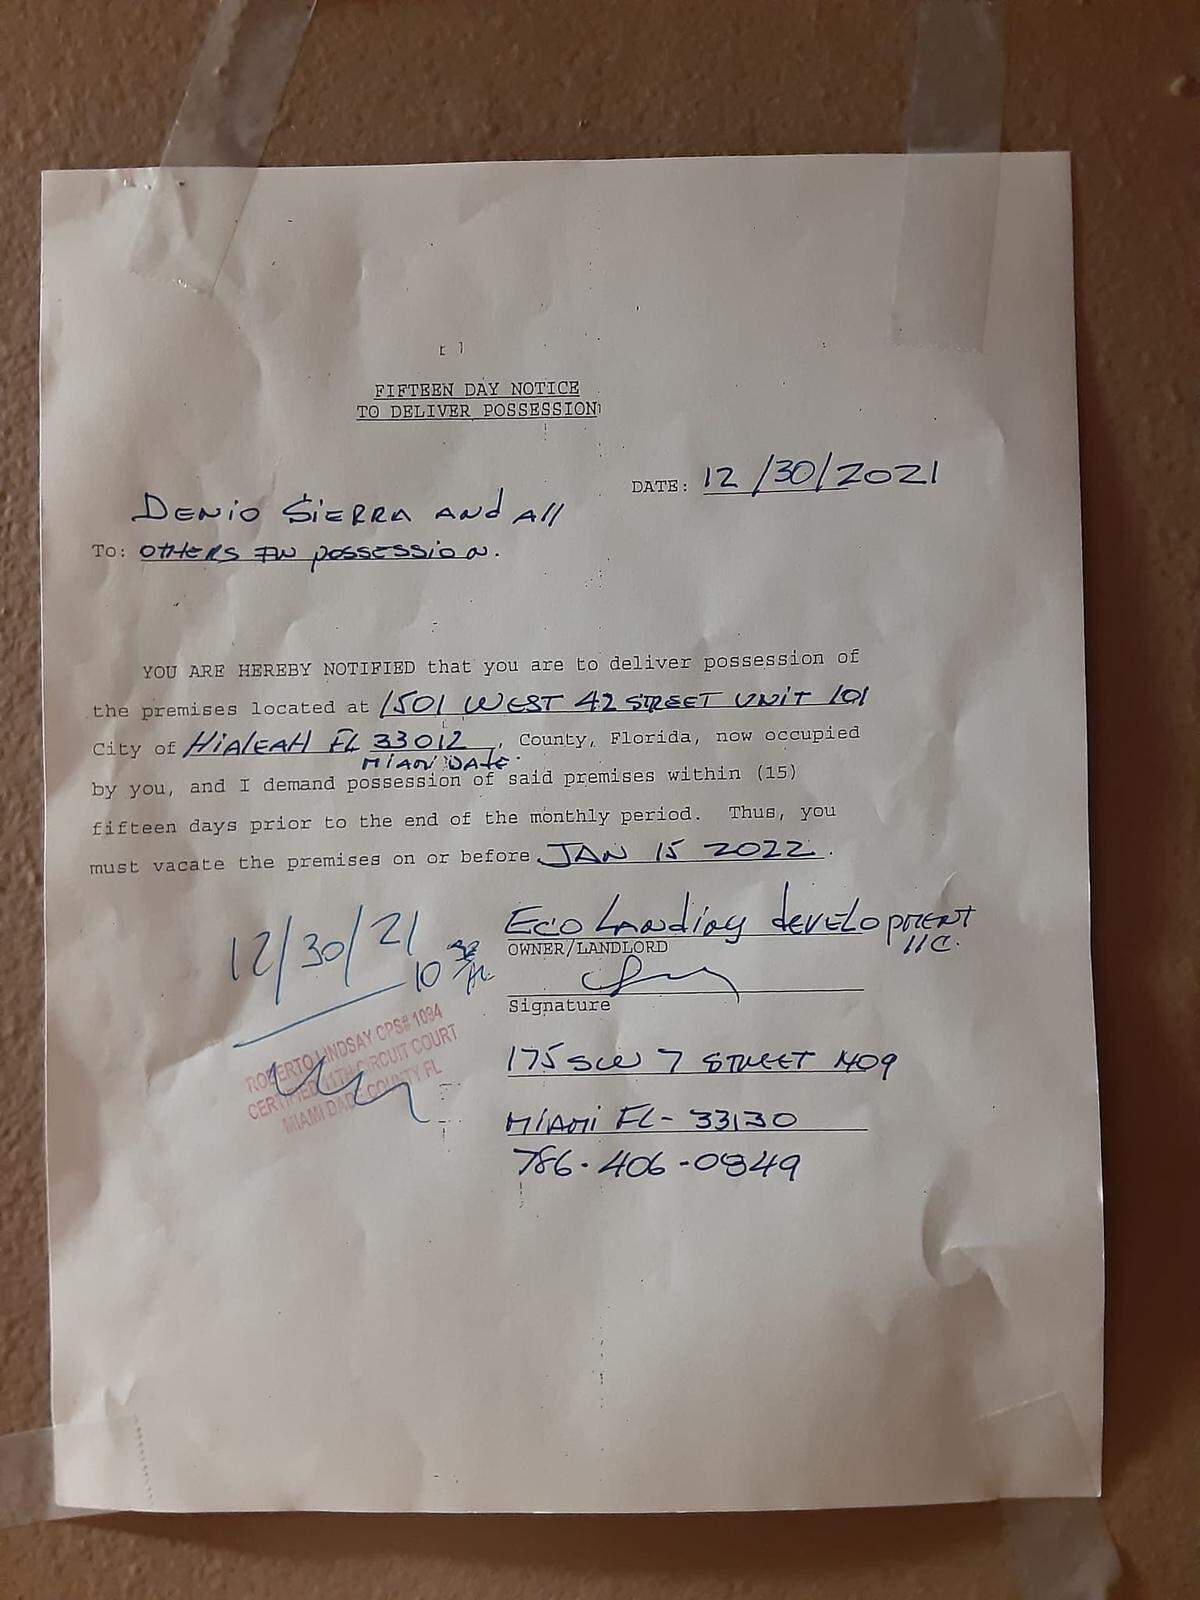 FIFTEEN DAY NOTICE
TO DELIVER POSSESSION
DATE: 12/30/2021
DENiO SiERRA AND All
To: OTHERS IN possession.
YOU ARE HEREBY NOTIFIED that you are to deliver possession of
the premises located at 1501 WEST 42 STREET UNIT 101
City of HIALEAH FL 33012, County, Florida, now occupied
MIAMI DADE.
by you, and I demand possession of said premises within (15)
fifteen days prior to the end of the monthly period. Thus, you
must vacate the premises on or before JAN 15 2022.
ECO LANDing dEVELOPMENT
llC.
OWNER/LANDLORD
12/30/21
10
Signature
ROBERTO LINDSAY CPS# 1094
CERTIFIED 11TH CIRCUIT COURT
MIAMI DADE COUNTY FL
175 SW 7 STREET 1409
MIAMI FL - 33130
786-406-0849